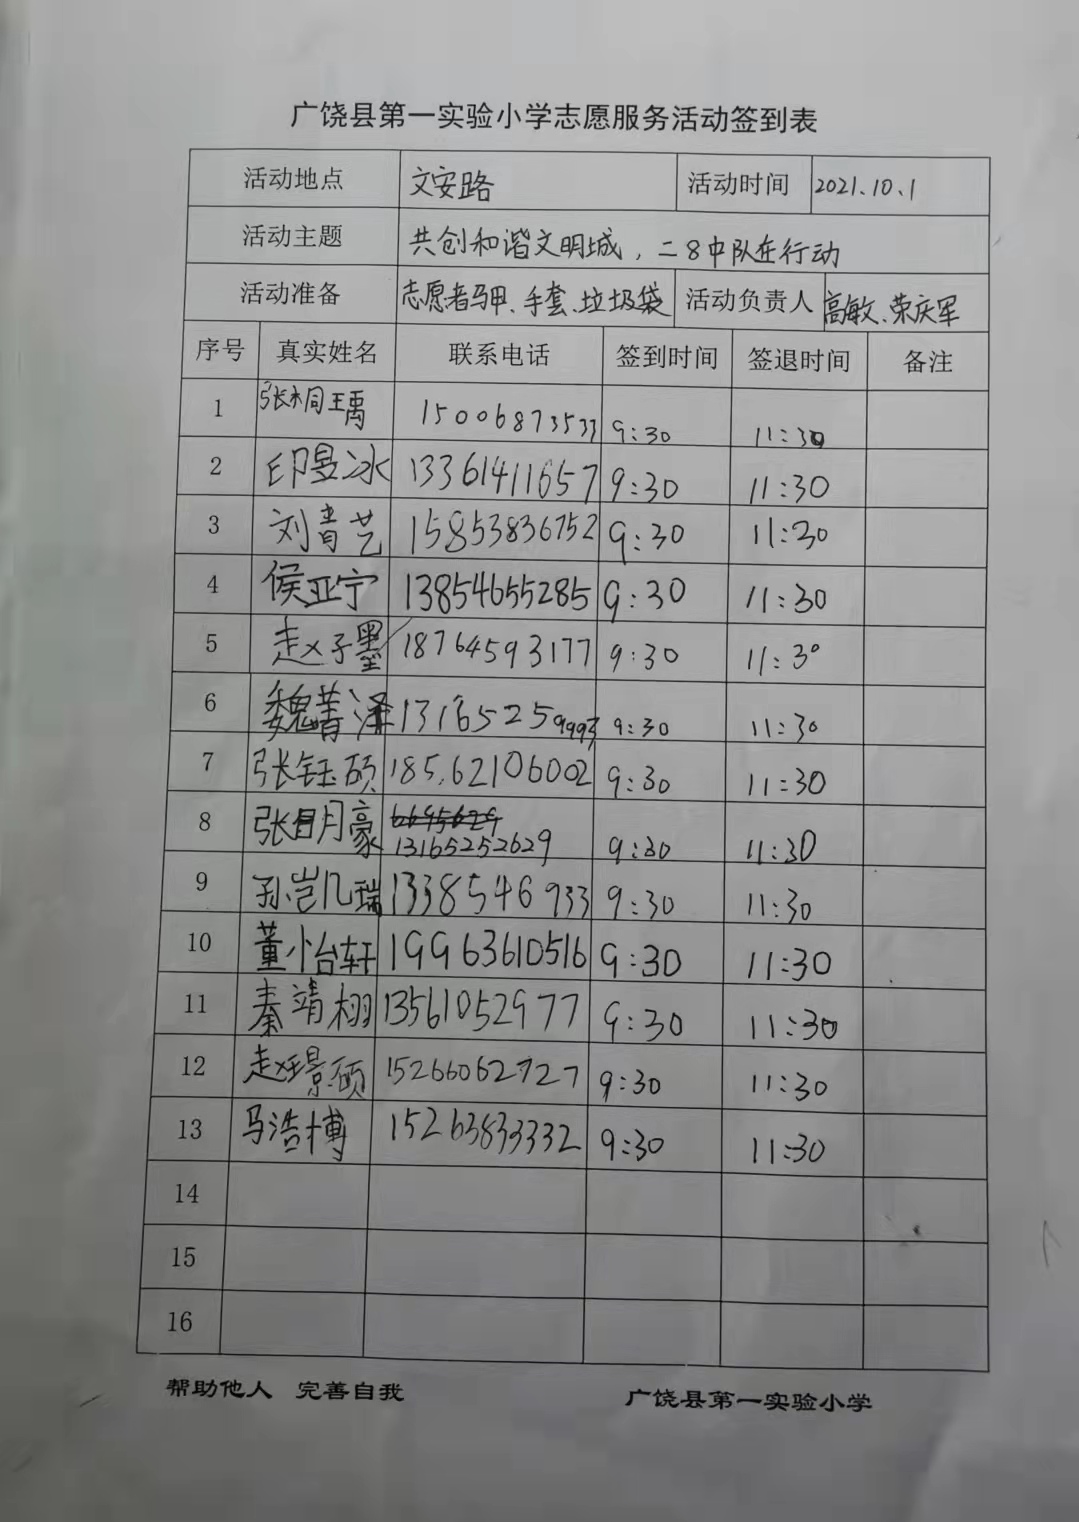 广饶县第一实验小学志愿服务活动签到表
活动地点 文安路 活动时间 2021.10.1
活动主题 共创和谐文明城，二8中队在行动
活动准备 志愿者马甲、手套、垃圾袋 活动负责人 高敏、荣庆军
序号 真实姓名 联系电话 签到时间 签退时间 备注
1 张桐王禹 15006873533 9:30 11:30
2 印昱冰 13361411657 9:30 11:30
3 刘青艺 15853836752 9:30 11:30
4 侯亚宁 13854655285 9:30 11:30
5 赵子墨 18764593177 9:30 11:30
6 魏菁泽 13165259993 9:30 11:30
7 张钰硕 185,62106002 9:30 11:30
8 张明豪 6695629
13165252629 9:30 11:30
9 孙凯瑞 1338546933 9:30 11:30
10 董怡轩 19963610516 9:30 11:30
11 秦靖栩 13561052977 9:30 11:30
12 赵璟硕 15266062727 9:30 11:30
13 马浩博 15263833332 9:30 11:30
14
15
16
帮助他人 完善自我 广饶县第一实验小学